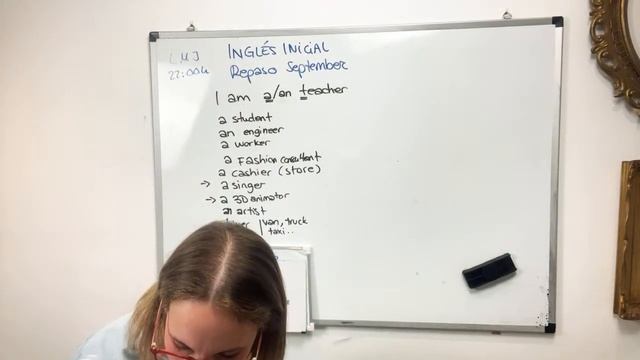 LMJ INGLÉS INICIAL
22:00h Repaso September
I am a/an teacher
a student
an engineer
a worker
a Fashion consultant
a cashier (store)
→ a singer
→ a 3D animator
an artist
van, truck
taxi..